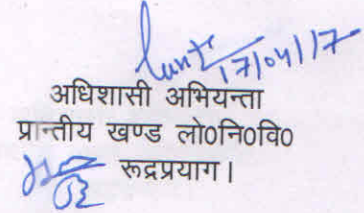 17/04/17
अधिशासी अभियन्ता
प्रान्तीय खण्ड लो०नि०वि०
रूद्रप्रयाग।